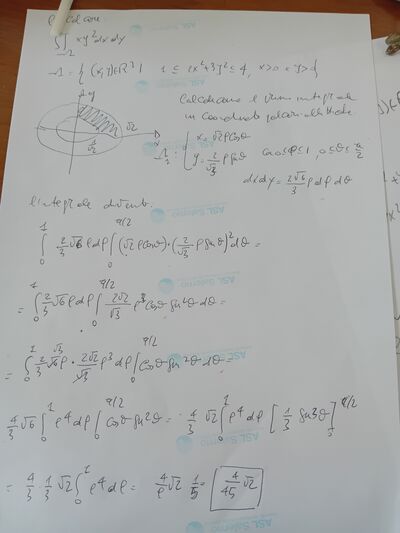 Calcolare:
∬_Ω xy² dx dy
Ω = { (x,y)∈ℝ² | 1 ≤ 2x²+3y² ≤ 4, x>0 y>
y
√2
1/√2
Calcoliamo
integrale
in coordinate polari ellittiche
Ω: { x = √2 ρ cosθ
y = 2/√3 ρ sinθ
0≤ρ≤1, 0≤θ≤π/2
dxdy = 2√6/3 ρ dρ dθ
L'integrale diventa:
∫₀¹ 2/3 √6 ρ dρ ∫₀^{π/2} (√2 ρ cosθ)·(2/√3 ρ sinθ)² dθ =
= ∫₀¹ 2/3 √6 ρ dρ ∫₀^{π/2} 2√2/√3 ρ³ cosθ sin²θ dθ =
= ∫₀¹ 2/3 √6 ρ · 2√2/√3 ρ³ dρ ∫₀^{π/2} cosθ sin²θ dθ =
4/3 √6 ∫₀¹ ρ⁴ dρ ∫₀^{π/2} cosθ sin²θ = 4/3 √2 ∫₀¹ ρ⁴ dρ [1/3 sin³θ]₀^{π/2}
= 4/3 · 1/3 √2 ∫₀¹ ρ⁴ dρ = 4/9 √2 1/5 = 4/45 √2
ASL Salerno